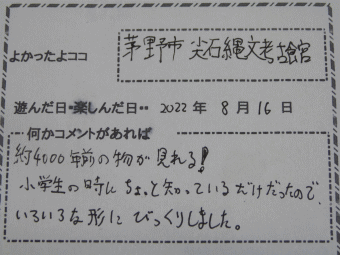 よかったよココ
茅野市 尖石縄文考古館
遊んだ日・楽しんだ日・・ 2022 年 8 月 16 日
何かコメントがあれば
約4000年前の物が見れる!
小学生の時にちょっと知っているだけだったので、
いろいろな形にびっくりしました。